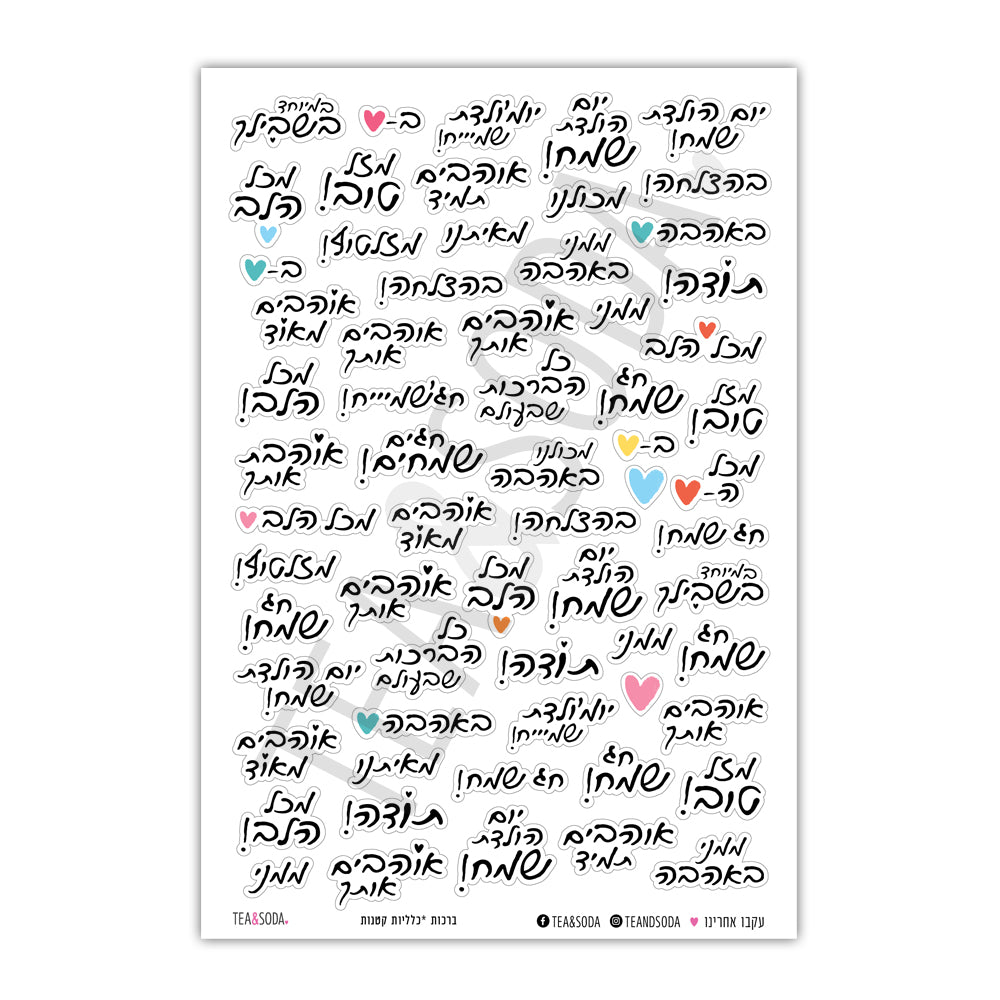 יום הולדת
שמח!
יום
הולדת
שמח!
יומולדת
שמיייח!
ב-
במיוחד
בשבילך
בהצלחה!
מכולנו
אוהבים
תמיד
מזל
טוב!
מכל
הלב
באהבה
ממני
באהבה
מאיתנו
מזלטוף!
ב-
תודה!
ממני
בהצלחה!
אוהבים
אותך
אוהבים
אותך
אוהבים
מאוד
מכל הלב
מזל
טוב!
חג
שמח!
כל
הברכות
שבעולם
חג'שמיייח!
מכל
הלב!
ב-
מכולנו
באהבה
חגים
שמחים!
אוהבת
אותך
מכל
ה-
חג שמח!
בהצלחה!
אוהבים
מאוד
מכל הלב
במיוחד
בשבילך
יום
הולדת
שמח!
מכל
הלב
אוהבים
אותך
מזלטוף!
חג
שמח!
ממני
תודה!
כל
הברכות
שבעולם
חג
שמח!
יום הולדת
שמח!
אוהבים
אותך
יומולדת
שמיייח!
באהבה
אוהבים
מאוד
מזל
טוב!
חג
שמח!
חג שמח!
מאיתנו
תודה!
מכל
הלב!
ממני
באהבה
אוהבים
תמיד
יום
הולדת
שמח!
אוהבים
אותך
ממני
TEA&SODA.
עקבו אחרינו TEANDSODA TEA&SODA
ברכות *כלליות קטנות
TEA&SODA